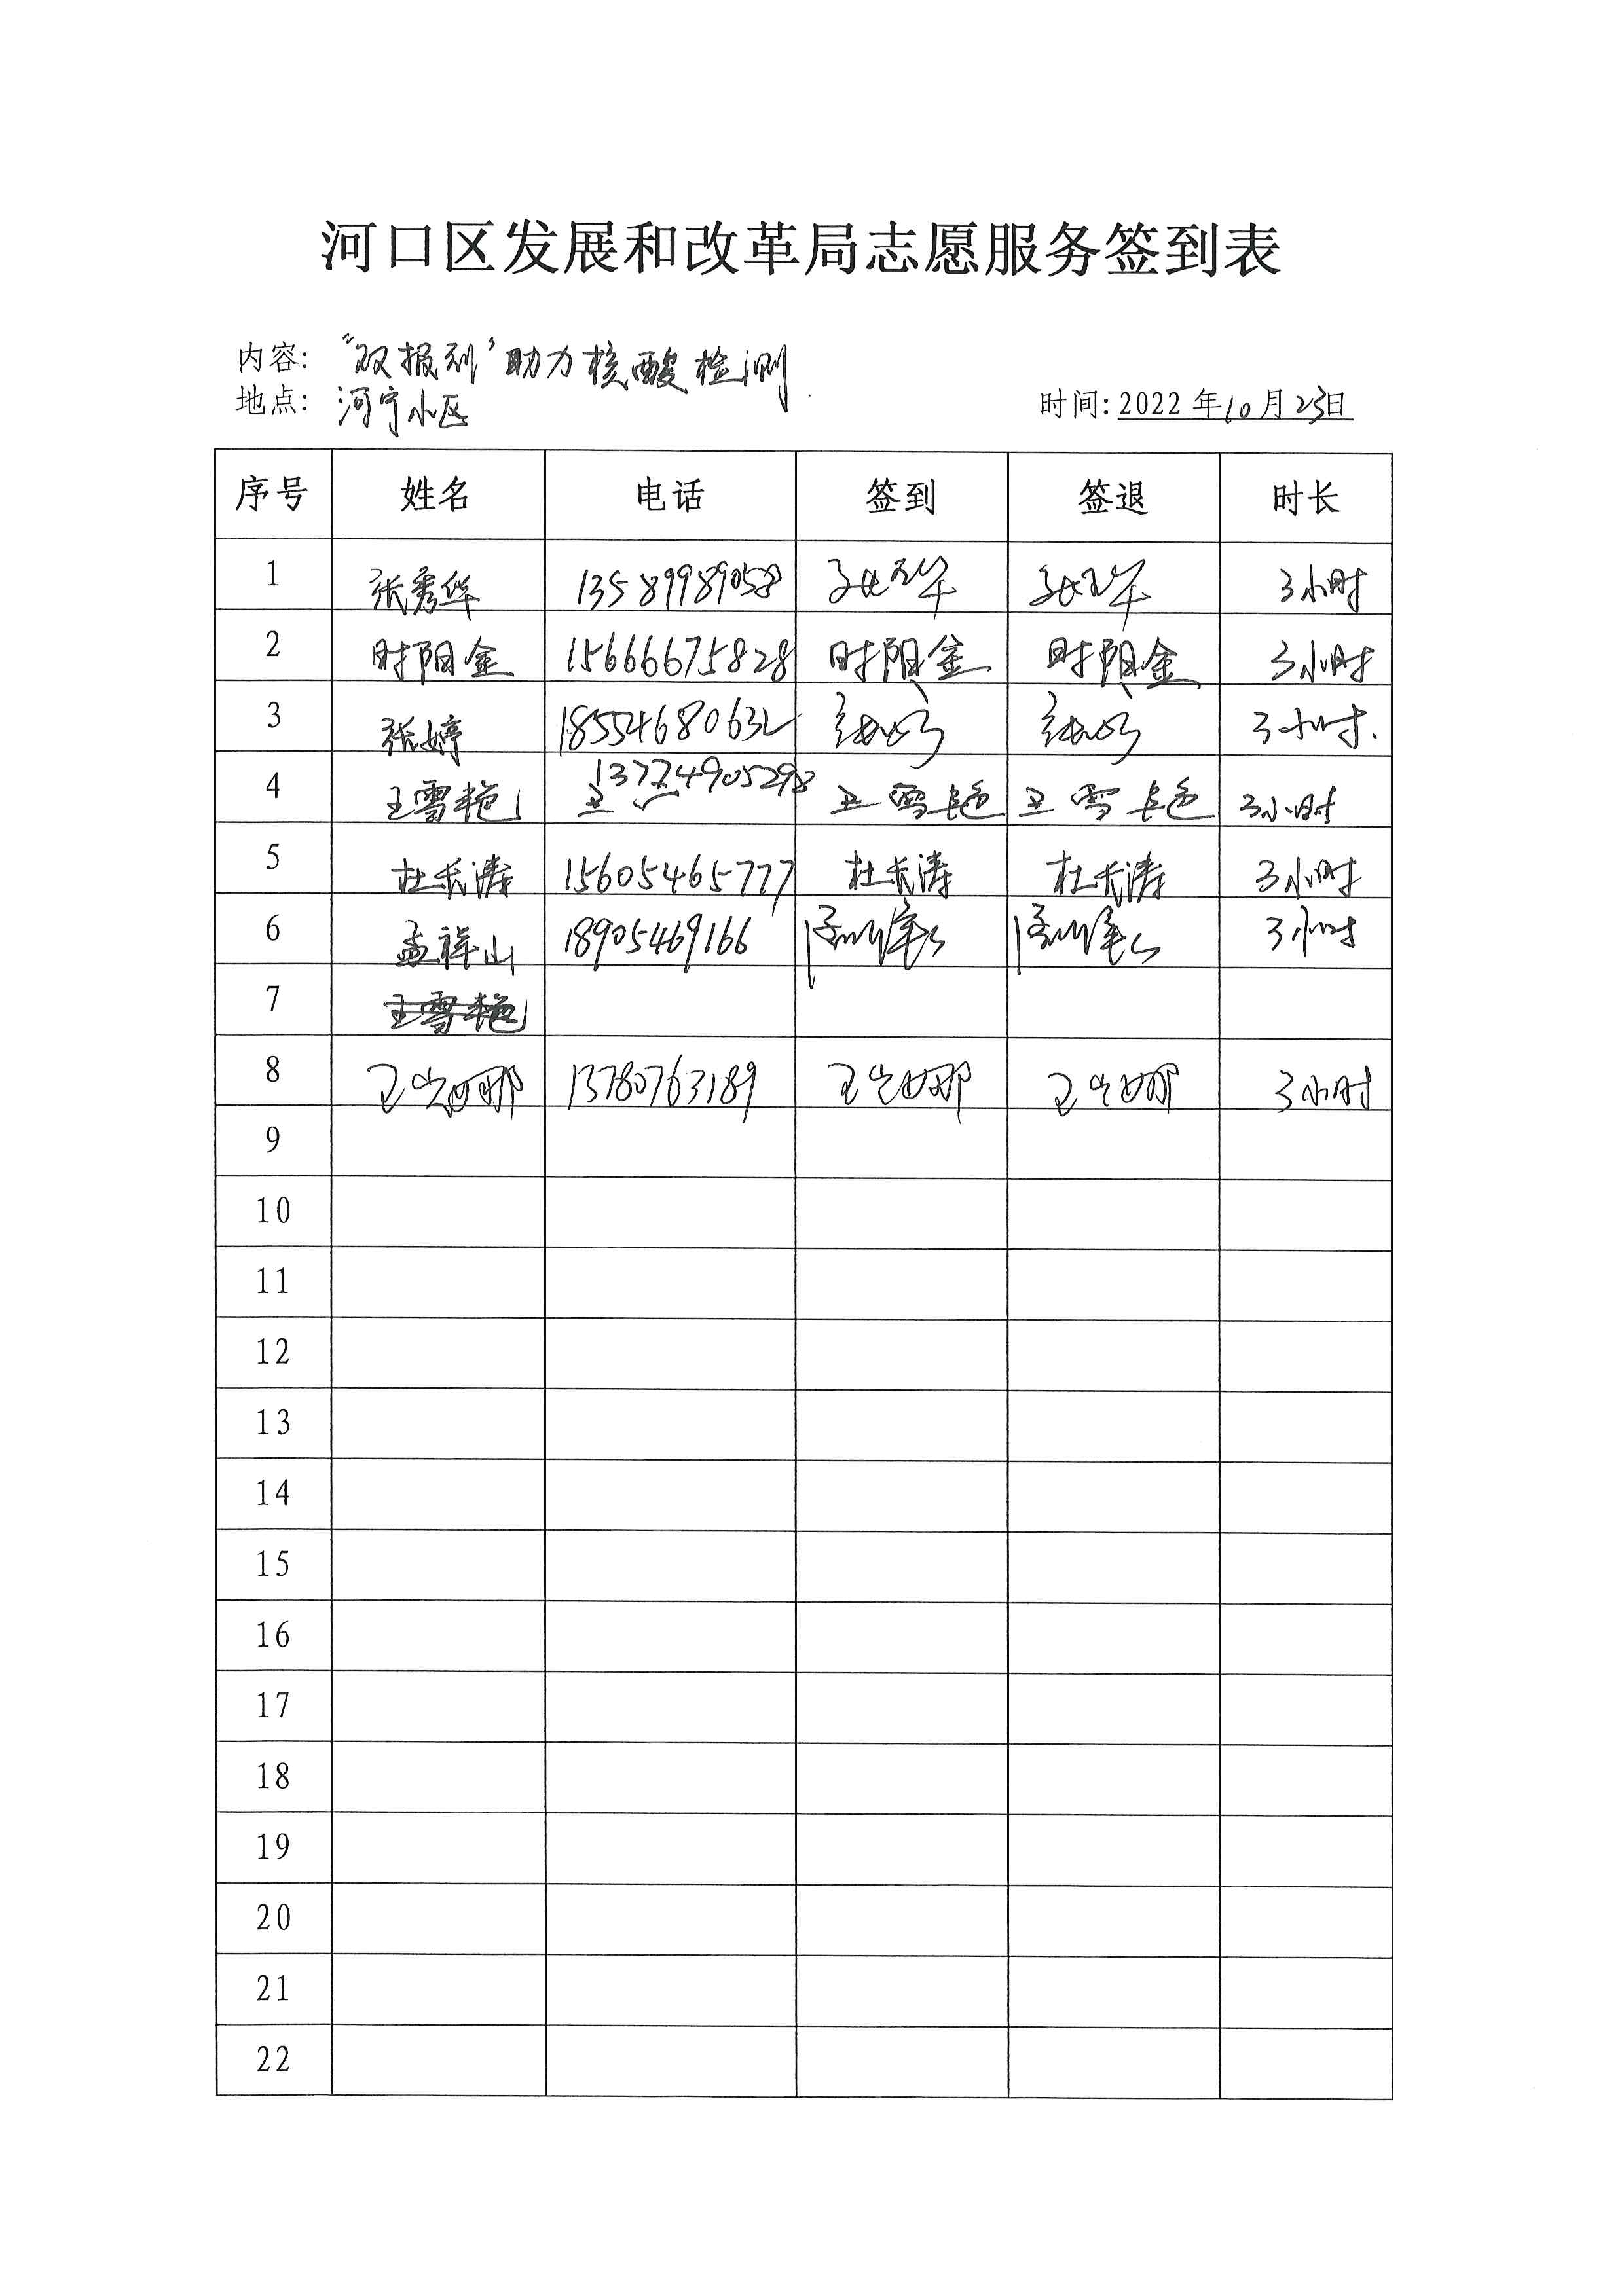 河口区发展和改革局志愿服务签到表
内容: "双报到"助力核酸检测
地点: 河宁小区
时间: 2022年10月23日
序号 姓名 电话 签到 签退 时长
1 张秀华 13589989058 张秀华 张秀华 3小时
2 时阳金 15666675828 时阳金 时阳金 3小时
3 张婷 18554680632 张婷 张婷 3小时.
4 王雪艳 13774905298 王雪艳 王雪艳 3小时
5 杜长涛 15605465777 杜长涛 杜长涛 3小时
6 孟祥山 18905469166 孟祥山 孟祥山 3小时
7 王雪艳
8 13780763189 3小时
9
10
11
12
13
14
15
16
17
18
19
20
21
22